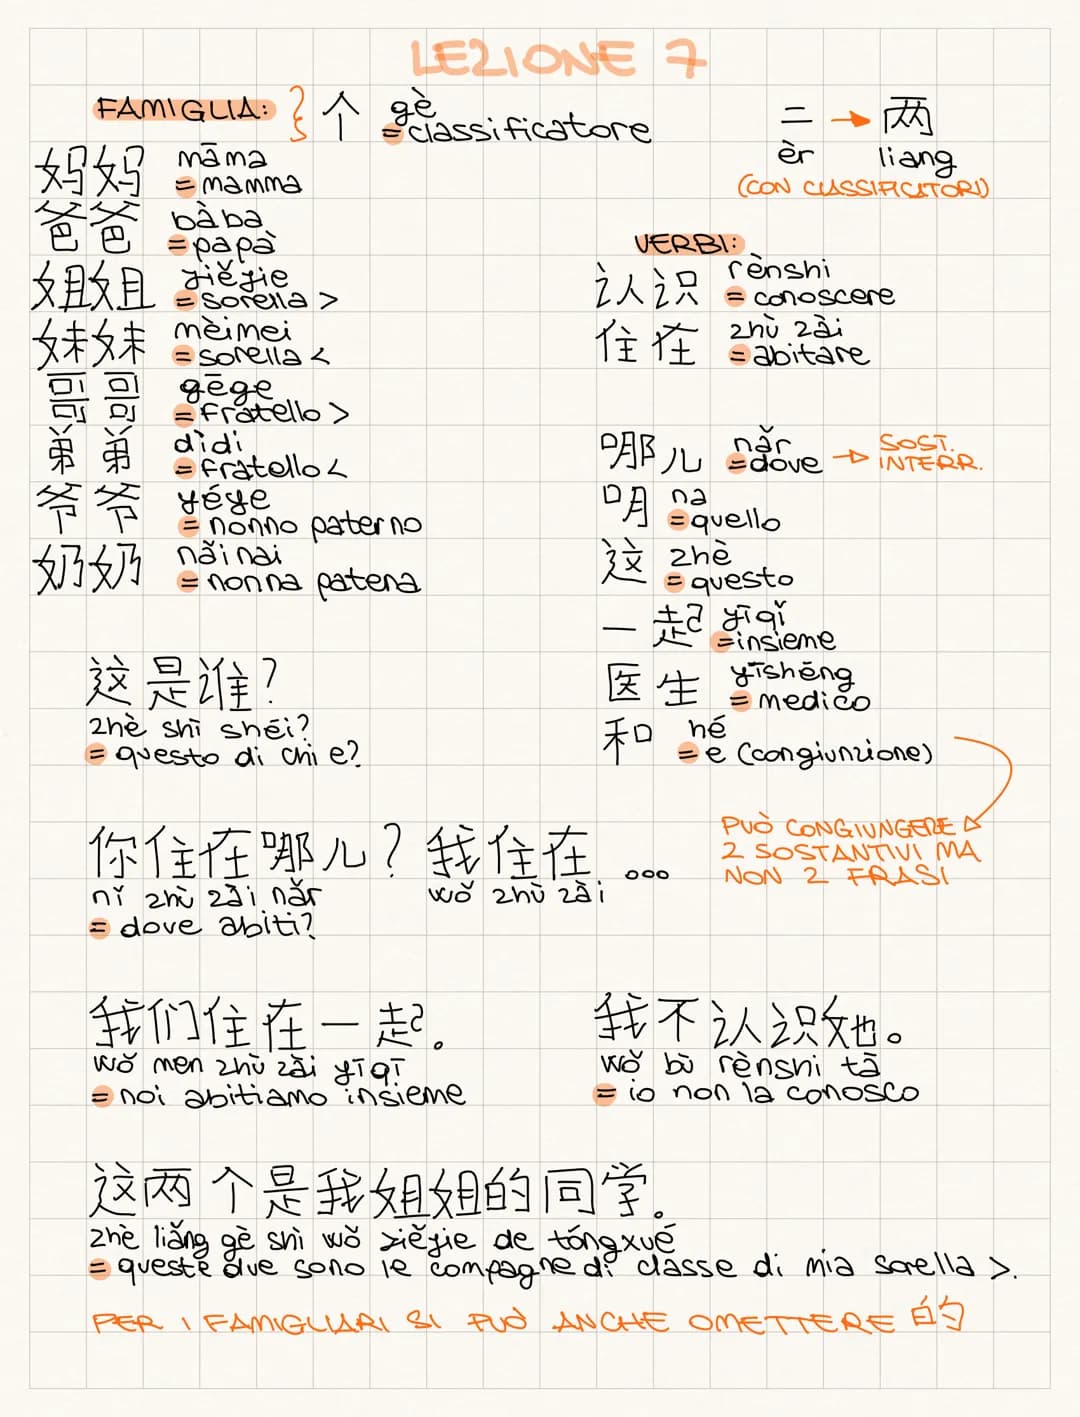 LEZIONE 7
FAMIGLIA: 个 gè
= classificatore
妈妈 māma
= mamma
爸爸 bàba
= papà
姐姐 jiějie
= sorella >
妹妹 mèimei
= sorella <
哥哥 gēge
= fratello >
弟弟 dìdi
= fratello <
爷爷 yéye
= nonno paterno
奶奶 nǎinai
= nonna patena
二 → 两
èr liang
(CON CLASSIFICATORI)
VERBI:
认识 rènshi
= conoscere
住在 zhù zài
= abitare
哪儿 nǎr
= dove → SOST. INTERR.
na
= quello
这 zhè
= questo
一起 yīqǐ
= insieme
医生 yīshēng
= medico
和 hé
= e (congiunzione)
PUÒ CONGIUNGERE
2 SOSTANTIVI MA
NON 2 FRASI
这是谁?
zhè shì shéi?
= questo di chi e?
你住在哪儿? 我住在 ...
nǐ zhù zài nǎr wǒ zhù zài
= dove abiti?
我们住在一起。
wǒ men zhù zài yīqī
= noi abitiamo insieme
我不认识她。
wǒ bù rènshi tā
= io non la conosco
这两个是我姐姐的同学。
zhè liǎng gè shì wǒ jiějie de tóngxué
= queste due sono le compagne di classe di mia sorella >.
PER I FAMIGLIARI SI PUÒ ANCHE OMETTERE 的